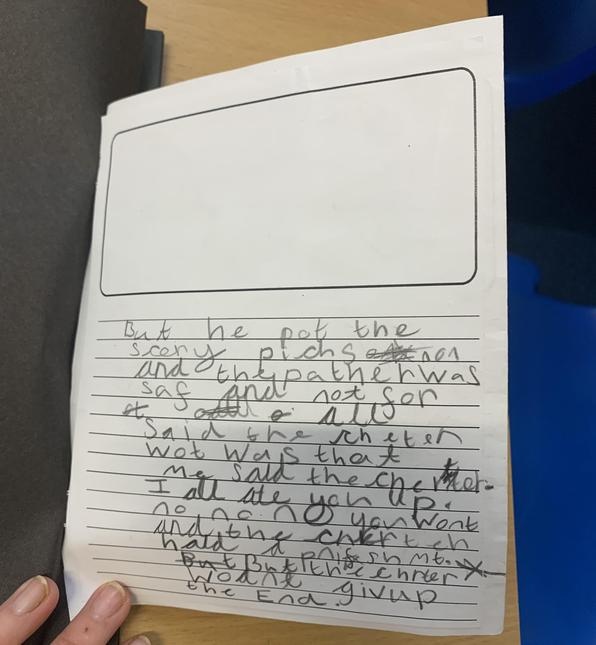 But he pot the
scery pichs non
and the patherwas
saf and not for
all
Said the cheter
wot was that
me said the cherter.
I all ate you up.
no no no you wont
and the
hald a
But But the chrter
wodnt givup
the End.